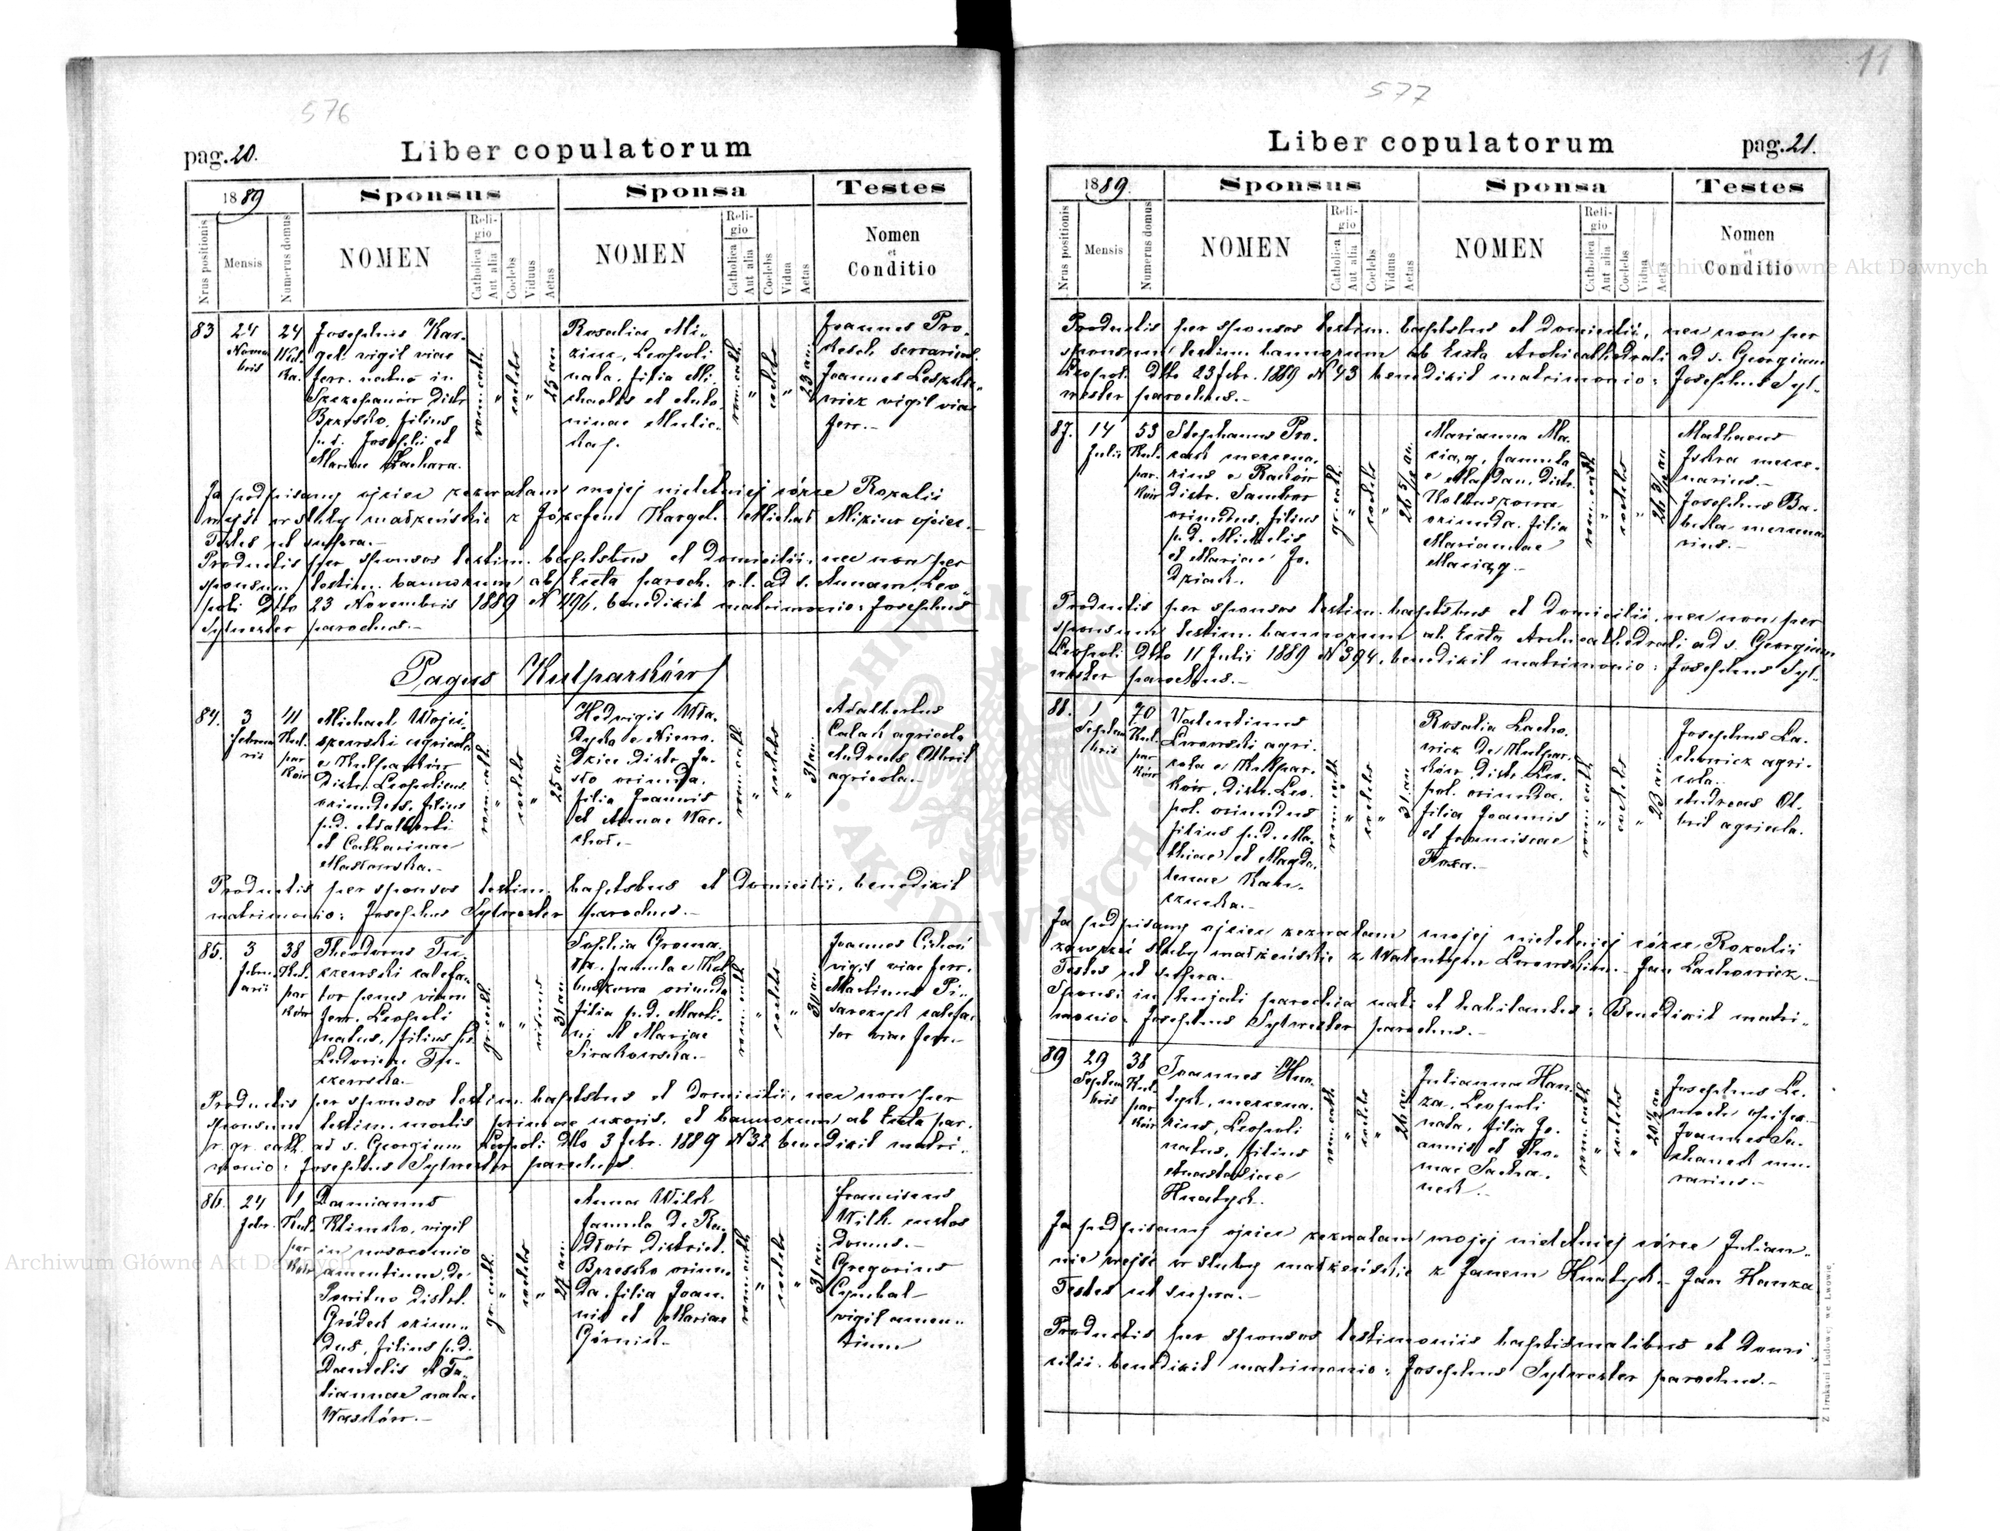 576
pag. 20.
Liber copulatorum
1889
Sponsus
Sponsa
Testes
Nrus positionis
Mensis
Numerus domus
NOMEN
Religio
Catholica
Aut alia
Coelebs
Viduus
Aetas
NOMEN
Religio
Catholica
Aut alia
Coelebs
Vidua
Aetas
Nomen
et
Conditio
83
24
Novem
bris
24
Josephus Kar-
gel vigil viae
ferr. natus in
Szczepanów Distr
Brzesko, filius
p.d. Josephi et
Mariae
rom. cath.
"
coelebs
"
25 an
Rosalia Mi-
ziur, Leopoli
nata, filia Mi-
chaelis et Anto-
ninae
rom. cath.
"
coelebs
"
23 an.
Joannes Pro-
Joannes
wicz vigil viae
ferr.-
Ja podpisany ojciec zezwalam mojej nieletniej córce Rozalii
wejść w śluby małżeńskie z Józefem Kargel. Michał Miziur ojciec.-
Testes ut supra.-
Productis per sponsos testim. baptsbus et Domicilii, nec non per
sponsum testim. bannorum ab Exta paroch. r.l. ad s. Annam, Leo-
poli Dtto 23 Novembris 1889 N 496, benedixit matrimonio: Josephus
Sylwester parochus.-
Pagus Kulparków
84.
3
Februa
rii
41
Kul
par
ków
Michael Wojci-
szewski agricola
e Kulparków
Distr. Leopoliens.
oriundus, filius
p.d. Adalberti
et Catharinae
Masłowska.-
rom. cath.
"
coelebs
"
25 an
Hedvigis Wła-
dyka e Niewo-
dziec Distr. Ja-
sło oriunda,
filia Joannis
et Annae War-
choł.-
rom. cath.
"
coelebs
"
31 an.
Adalbertus
agricola
Andreas Olbrit
agricola.-
Productis per sponsos testim. baptsbus et Domicilii, benedixit
matrimonio: Josephus Sylwester parochus.-
85.
3
Febru
arii
38
Kul
par
ków
Theodorus Tu-
szewski calefa-
tor penes viam
ferr. Leopoli
natus, filius
Ludovicae Tu-
szewska.-
gr. cath.
"
"
viduus
31 an
Sophia Groma-
famula e Kol
buszowa oriunda
filia p.d. Marti-
ni et Mariae
Sirakowska.-
rom. cath.
"
coelebs
"
30 an
Joannes Cichoń
vigil viae ferr.
Martinus Pi-
sarczyk calefa-
tor viae ferr.-
Productis per sponsos testim. baptsbus et Domicilii, nec non per
sponsum testim. mortis primore uxoris, et bannorum ab Exta par.
p. gr. cath. ad s. Georgium Leopoli Dtto 3 febr. 1889 N 32 benedixit matri-
monio: Josephus Sylwester parochus.
86.
24
febr.
1
Kul
par
ków
Damianus
Klimko, vigil
in nosocomio
amentium, de
Distr.
Gródek oriun-
dus, filius p.d.
Danielis et Ta-
tiannae nata
Waśków.-
gr. cath.
"
coelebs
"
24 an.
Anna Wilk
famula de Ra-
dwór District.
Brzesko oriun-
da, filia Joan-
nis et Mariae
Górnik.-
rom. cath.
"
coelebs
"
31 an.
Franciscus
Wilk custos
domus.-
Gregorius
Cymbal
vigil amen-
tium
11
577
Liber copulatorum
pag. 21.
1889.
Sponsus
Sponsa
Testes
Nrus positionis
Mensis
Numerus domus
NOMEN
Religio
Catholica
Aut alia
Coelebs
Viduus
Aetas
NOMEN
Religio
Catholica
Aut alia
Coelebs
Vidua
Aetas
Nomen
et
Conditio
Productis per sponsos testim. baptsbus et Domicilii, nec non per
sponsum testim. bannorum ab Exta Archicathedrali ad s. Georgium
Leopol. Dtto 23 febr. 1889 N 43 benedixit matrimonio: Josephus Syl-
wester parochus.-
87.
14
Julii
53
Kul
par
ków
Stephanus Pro-
mercena-
rius e
distr. Sambor
oriundus, filius
p.d. Michaelis
et Mariae
gr. cath.
"
coelebs
"
Marianna Ma-
ziąg, famula
e Majdan, distr.
Kolbuszowa
oriunda, filia
Mariannae
Maziąg.-
rom. cath.
"
coelebs
"
Mathaeus
Iskra merce-
narius.-
Josephus Ba-
mercena
rius.-
Productis per sponsos testim. baptsbus et Domicilii, nec non per
sponsum testim. bannorum ab Exta Archicathedrali ad s. Georgium
Leopoli Dtto 11 Julii 1889 N 394, benedixit matrimonio: Josephus Syl-
wester parochus.-
88.
1
Septem
bris
70
Kul
par
ków
Valentinus
Lwowski agri-
cola e Kulpar-
ków, Distr. Leo-
pol. oriundus
filius p.d. Ma-
thiae et Magda-
lenae
rom. cath
"
coelebs
"
31 an
Rosalia Lacho-
wicz de Kulpar-
ków, Distr. Leo-
pol. oriunda,
filia Joannis
et Franciscae
rom. cath
"
coelebs
"
23 an.
Josephus La-
chowicz agri-
cola.-
Andreas Ol-
brit agricola.
Ja podpisany ojciec zezwalam mojej nieletniej córce Rozalii
zawrzeć śluby małżeńskie z Walentym Lwowskim. Jan Lachowicz.-
Testes ut supra.-
Sponsi in hujati parochia nati et habitantes: Benedixit matri-
monio: Josephus Sylwester parochus.-
89
29
Septem
bris
38
Kul
par
ków
Joannes Hna-
tyk, mercena-
rius, Leopoli
natus, filius
Anastasiae
Hnatyk.
rom. cath
"
coelebs
"
26 an
Julianna Han-
za, Leopoli
nata, filia Jo-
annis et Tho-
mae Sucha-
nek.-
rom. cath
"
coelebs
"
Josephus Le-
opifex.-
Joannes Su-
chanek mu-
rarius.-
Ja podpisany ojciec zezwalam mojej nieletniej córce Julian-
nie wejść w śluby małżeńskie z Janem Hnatyk.- Jan Hanza
Testes ut supra.-
Productis per sponsos testimoniis baptismalibus et Domi-
cilii. benedixit matrimonio: Josephus Sylwester parochus.-
Z Drukarni Ludowej we Lwowie.
Archiwum Główne Akt Dawnych
Archiwum Główne Akt Dawnych
ARCHIWUM GŁÓWNE AKT DAWNYCH